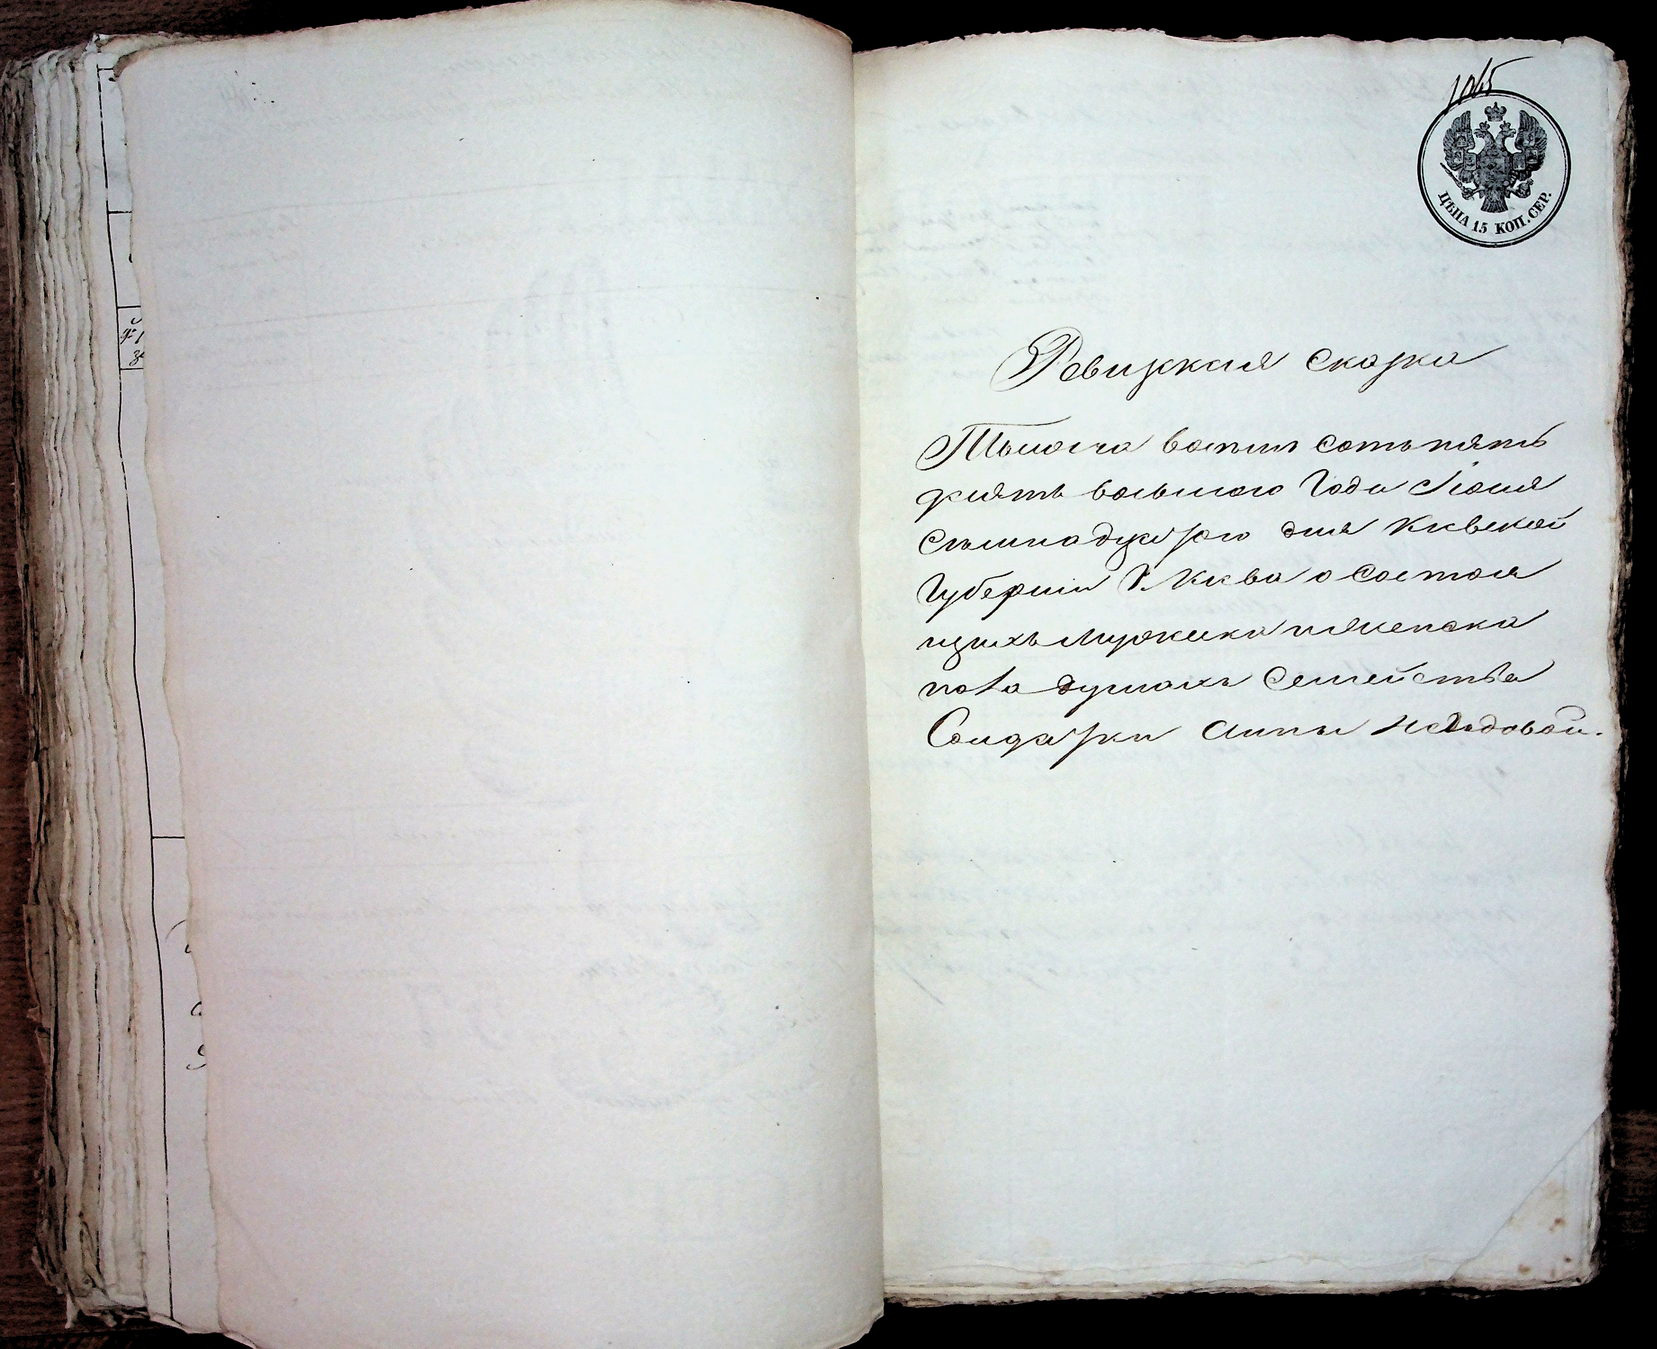 1065
ЦѢНА 15 КОП. СЕР.
Ревижкия сказка
Тысяча восемь сотъ пять
десятъ восьмого Года Июня
дня Киевской
Губернии Г. Киева о состоя
щихъ мужеска и женска
пола душахъ Семейства
Солдатки Анны